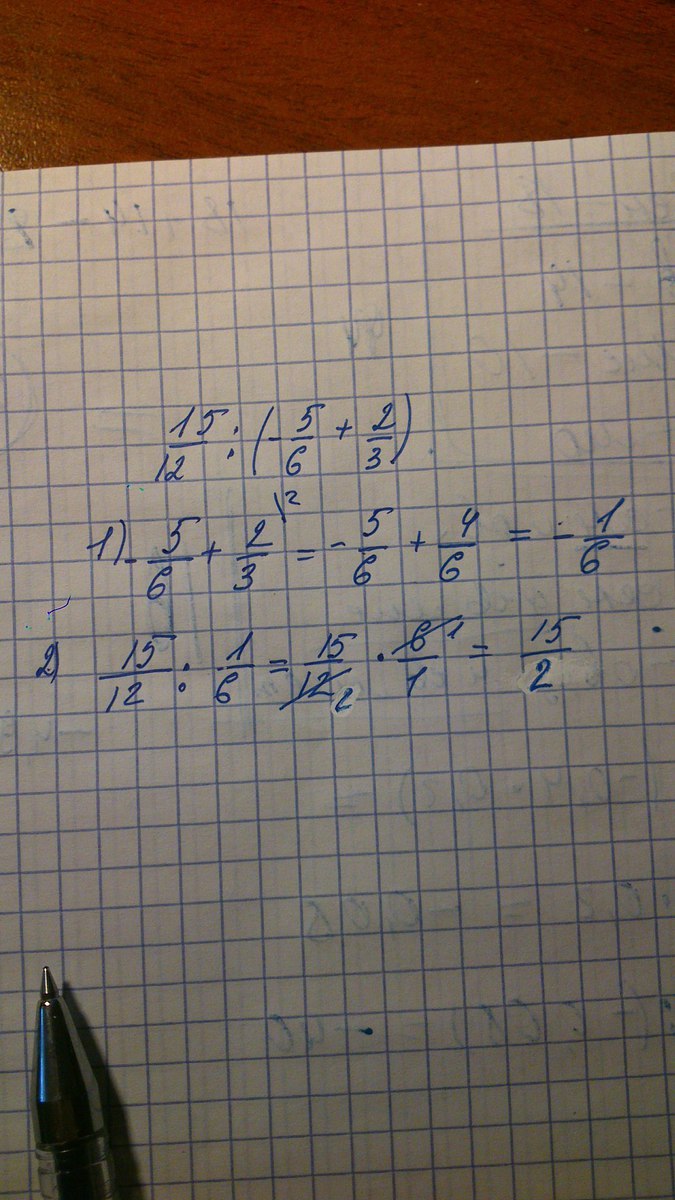 15/12 : (-5/6 + 2/3)
1) -5/6 + 2/3 \2 = -5/6 + 4/6 = -1/6
2) 15/12 : 1/6 = 15/12 2 · 6 1/1 = 15/2